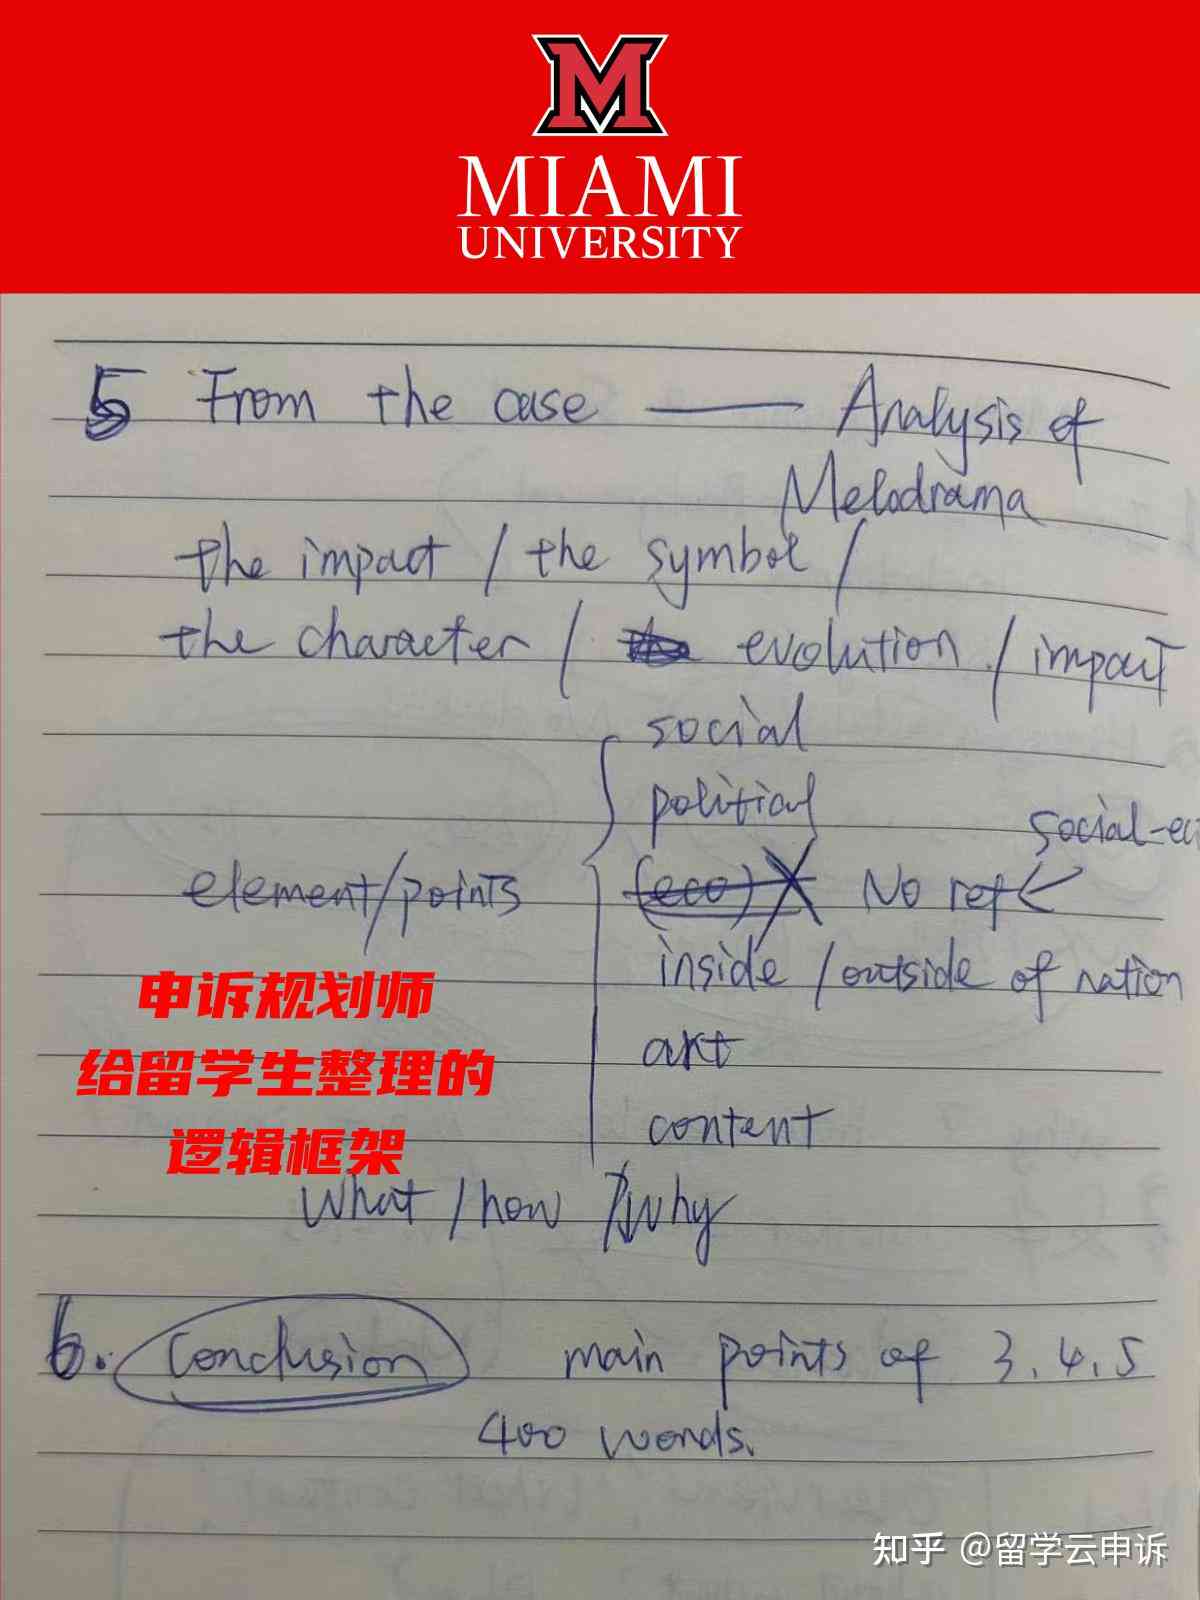 M
MIAMI
UNIVERSITY
5 From the case —— Analysis of
Melodrama
the impact / the symbol /
the character / evolution / impact
social
political
social-ec
element/points (eco) No ref <
inside / outside of nation
art
content
申诉规划师
给留学生整理的
逻辑框架
What / how / why
6. Conclusion main points of 3, 4, 5
400 words.
知乎 @留学云申诉